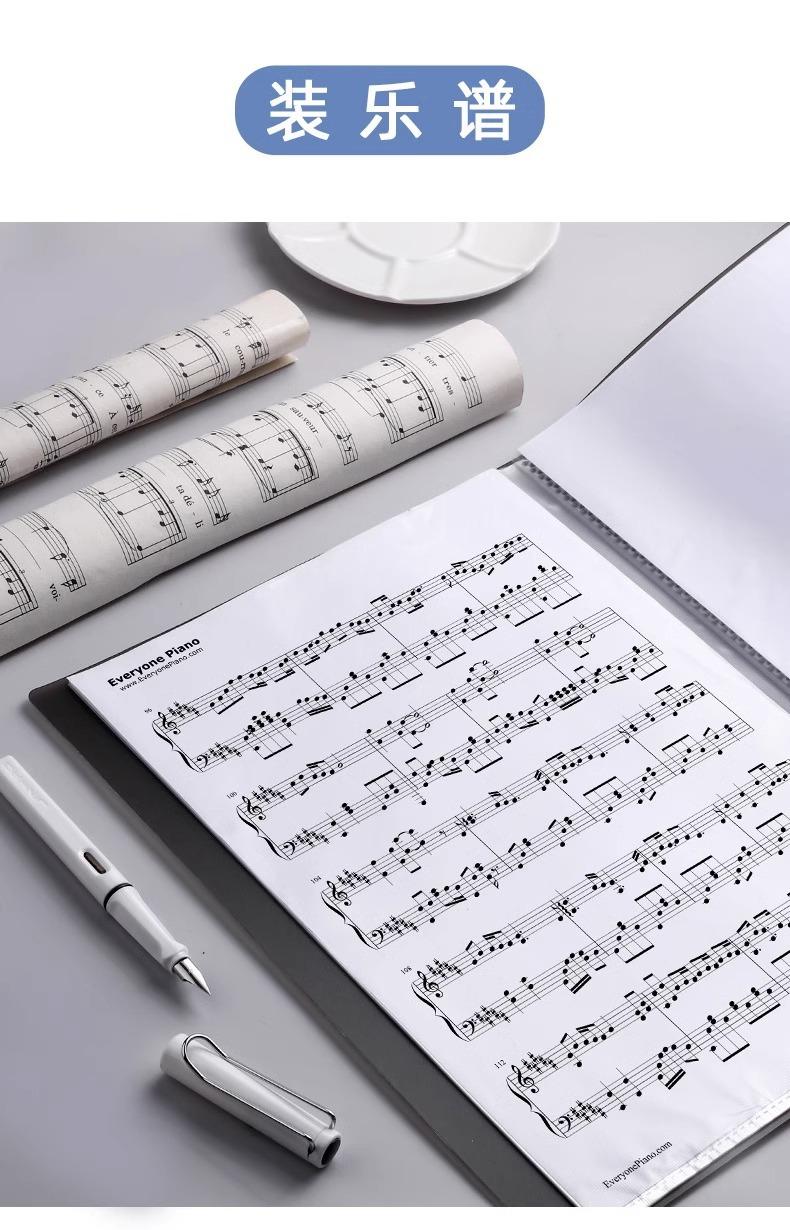 装乐谱
le
cou-n
ce
A
ner
tren -
sau veur
ta dé - li
voi-
Everyone Piano
www.EveryonePiano.com
96
100
104
108
112
EveryonePiano.com